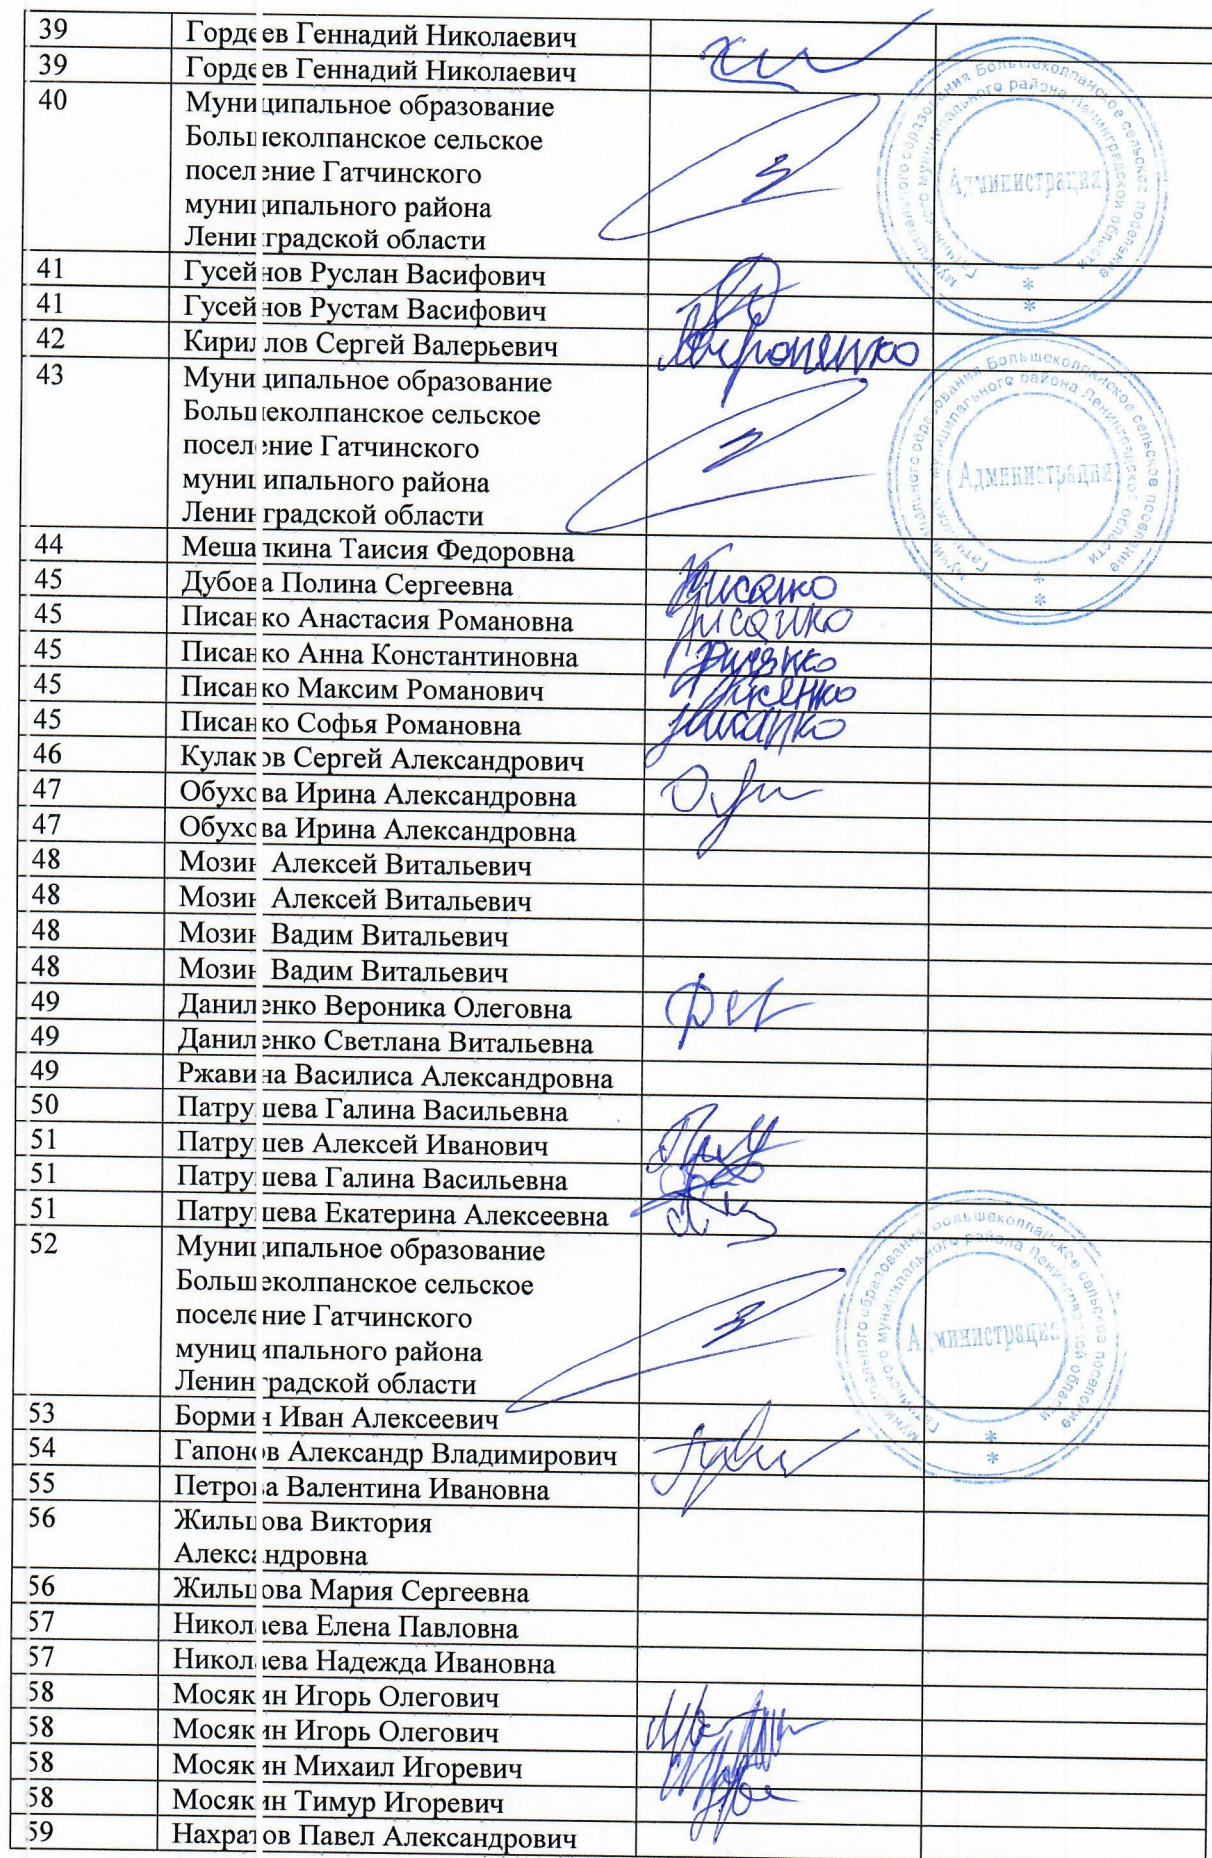 39 Гордеев Геннадий Николаевич
39 Гордеев Геннадий Николаевич
40 Муниципальное образование
Большеколпанское сельское
поселение Гатчинского
муниципального района
Ленинградской области
Администрация
41 Гусейнов Руслан Васифович
41 Гусейнов Рустам Васифович
42 Кириллов Сергей Валерьевич
43 Муниципальное образование
Большеколпанское сельское
поселение Гатчинского
муниципального района
Ленинградской области
Администрация
44 Мешалкина Таисия Федоровна
45 Дубова Полина Сергеевна Писанко
45 Писанко Анастасия Романовна Писанко
45 Писанко Анна Константиновна Писанко
45 Писанко Максим Романович Писанко
45 Писанко Софья Романовна Писанко
46 Кулаков Сергей Александрович
47 Обухова Ирина Александровна
47 Обухова Ирина Александровна
48 Мозин Алексей Витальевич
48 Мозин Алексей Витальевич
48 Мозин Вадим Витальевич
48 Мозин Вадим Витальевич
49 Даниленко Вероника Олеговна
49 Даниленко Светлана Витальевна
49 Ржавина Василиса Александровна
50 Патрушева Галина Васильевна
51 Патрушев Алексей Иванович
51 Патрушева Галина Васильевна
51 Патрушева Екатерина Алексеевна
52 Муниципальное образование
Большеколпанское сельское
поселение Гатчинского
муниципального района
Ленинградской области
Администрация
53 Бормин Иван Алексеевич
54 Гапонов Александр Владимирович
55 Петрова Валентина Ивановна
56 Жильцова Виктория
Александровна
56 Жильцова Мария Сергеевна
57 Николаева Елена Павловна
57 Николаева Надежда Ивановна
58 Мосякин Игорь Олегович
58 Мосякин Игорь Олегович
58 Мосякин Михаил Игоревич
58 Мосякин Тимур Игоревич
59 Нахратов Павел Александрович